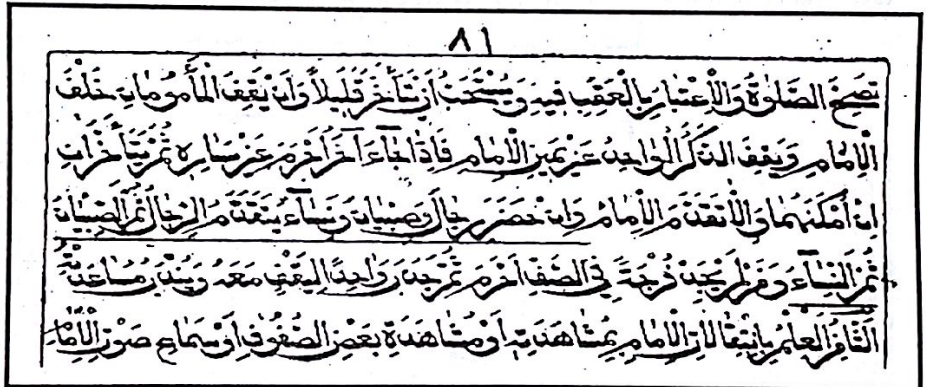 ٨١
تَصِحَّ الصَّلٰوةُ وَالْاِعْتِبَارُ بِالْعَقِبِ فِيهِ وَيُسْتَحَبُّ اَنْ يَتَأَخَّرَ قَلِيلًا وَاَنْ يَقِفَ الْمَأْمُومَانِ خَلْفَ
الْاِمَامِ وَيَقِفَ الذَّكَرُ الْوَاحِدُ عَنْ يَمِينِ الْاِمَامِ فَاِذَا جَاءَ آخَرُ اَحْرَمَ عَنْ يَسَارِهِ ثُمَّ يَتَأَخَّرَانِ
اِنْ اَمْكَنَهُمَا وَاِلَّا تَقَدَّمَ الْاِمَامُ وَاِنْ حَضَرَ رِجَالٌ وَصِبْيَانٌ وَنِسَآءٌ يَتَقَدَّمُ الرِّجَالُ ثُمَّ الصِّبْيَانُ
ثُمَّ النِّسَآءُ وَمَنْ لَمْ يَجِدْ فُرْجَةً فِي الصَّفِّ اَحْرَمَ ثُمَّ جَذَبَ وَاحِدًا لِيَقِفَ مَعَهُ وَيُنْدَبُ مُسَاعَدَتُهُ
الثَّانِي الْعِلْمُ بِانْتِقَالَاتِ الْاِمَامِ بِمُشَاهَدَتِهِ اَوْ مُشَاهَدَةِ بَعْضِ الصُّفُوفِ اَوْ سَمَاعِ صَوْتِ الْاِمَامِ